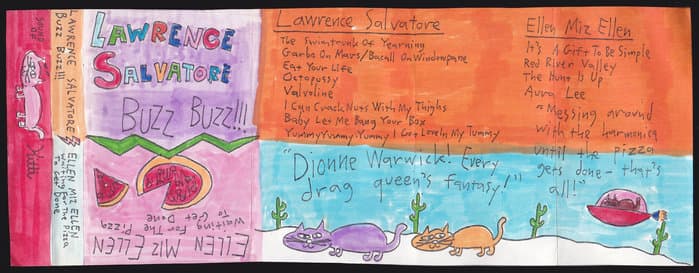 SOUND
OF
Kitt
LAWRENCE SALVATORE
BUZZ BUZZ!!!
ELLEN MIZ ELLEN
Waiting For The Pizza
To Get Done
LAWRENCE
SALVATORE
BUZZ BUZZ!!!
ELLEN MIZ ELLEN
Waiting For The Pizza
To Get Done
Lawrence Salvatore
The Swimtrunk Of Yearning
Garbo On Mars/Bacall On Windowpane
Eat Your Life
Octopussy
Valvoline
I Can Crack Nuts With My Thighs
Baby Let Me Bang Your Box
Yummy Yummy Yummy I Got Love In My Tummy
"Dionne Warwick! Every
drag queen's fantasy!"
Ellen Miz Ellen
It's A Gift To Be Simple
Red River Valley
The Hunt Is Up
Aura Lee
"Messing around
with the harmonica
until the pizza
gets done - that's
all!"